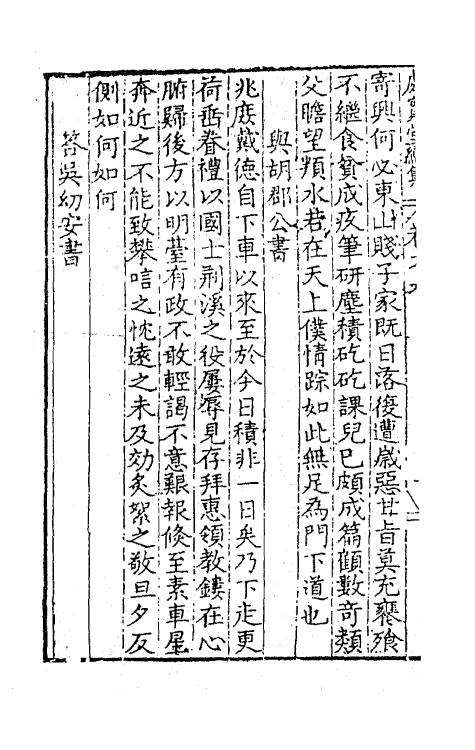 寄興何必東山賤子家既日落復遭歲惡甘旨莫充饔飱
不繼食貧成疾筆研塵積矻矻課兒已頗成篇顧數奇類
父瞻望頖水若在天上僕情踪如此無足為門下道也
與胡郡公書
兆庶戴德自下車以來至於今日積非一日矣乃下走更
荷垂眷禮以國士荆溪之役屢辱見存拜惠領教鏤在心
腑歸後方以明臺有政不敢輕謁不意艱報倐至素車星
奔近之不能致攀唁之忱遠之未及効炙絮之敬旦夕反
側如何如何
答吳幼安書